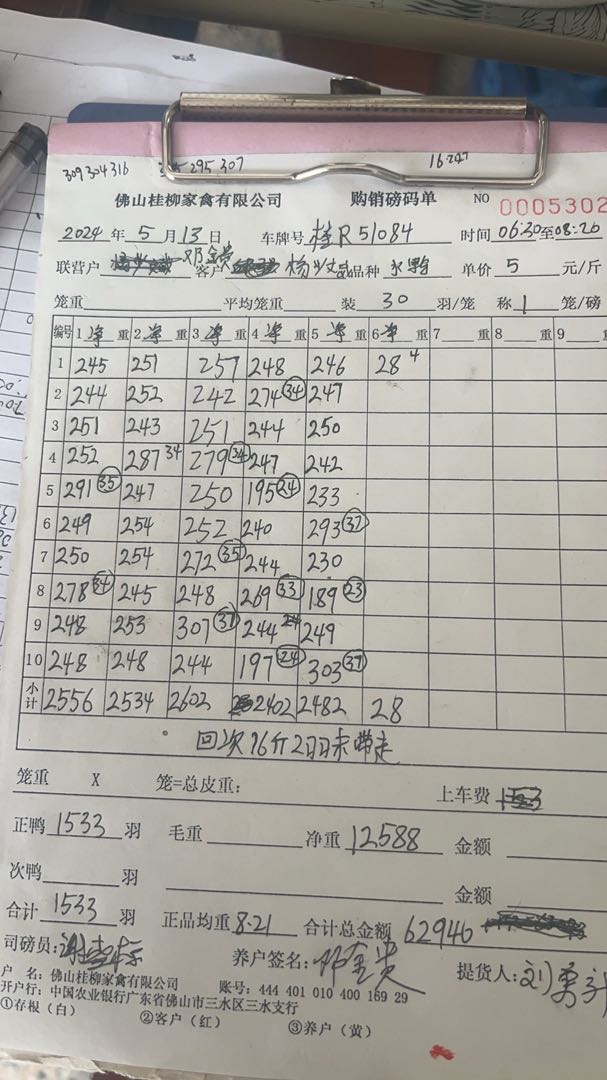 309 304 316 295 307 16.247
佛山桂柳家禽有限公司 购销磅码单 NO 0005302
2024 年 5 月 13 日 车牌号 桂R51084 时间 06:30至08:20
联营户 客户 杨兴文 品种 水鸭 单价 5 元/斤
笼重 平均笼重 装 30 羽/笼 称 1 笼/磅
编号 1 净 重 2 净 重 3 净 重 4 净 重 5 净 重 6 净 重 7 重 8 重 9
1 245 251 257 248 246 28 4
2 244 252 242 274 34 247
3 251 243 251 244 250
4 252 287 34 279 34 247 242
5 291 35 247 250 195 24 233
6 249 254 252 240 293 37
7 250 254 272 35 244 230
8 278 34 245 248 269 33 189 23
9 248 253 307 37 244 249
10 248 248 244 197 24 303 37
小计 2556 2534 2602 2402 2482 28
回次76斤2日日未带走
笼重 X 笼=总皮重: 上车费
正鸭 1533 羽 毛重 净重 12588 金额
次鸭 羽 金额
合计 1533 羽 正品均重 8.21 合计总金额 62940
司磅员: 养户签名: 邓金贵 提货人:
户 名: 佛山桂柳家禽有限公司 账号: 444 401 010 400 169 29
开户行: 中国农业银行广东省佛山市三水区三水支行
①存根(白) ②客户(红) ③养户(黄)